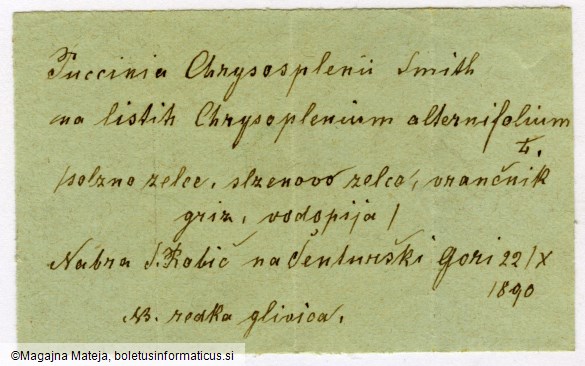 Puccinia Chrysosplenii Smith
na listih Chrysoplenium alternifolium
L.
/solzno zelce, slzenovo zelco, vrančnik
griz, vodopija/
Nabra S. Robič na Šenturški Gori 22/X
1890
NB. redka glivica.
©Magajna Mateja, boletusinformaticus.si